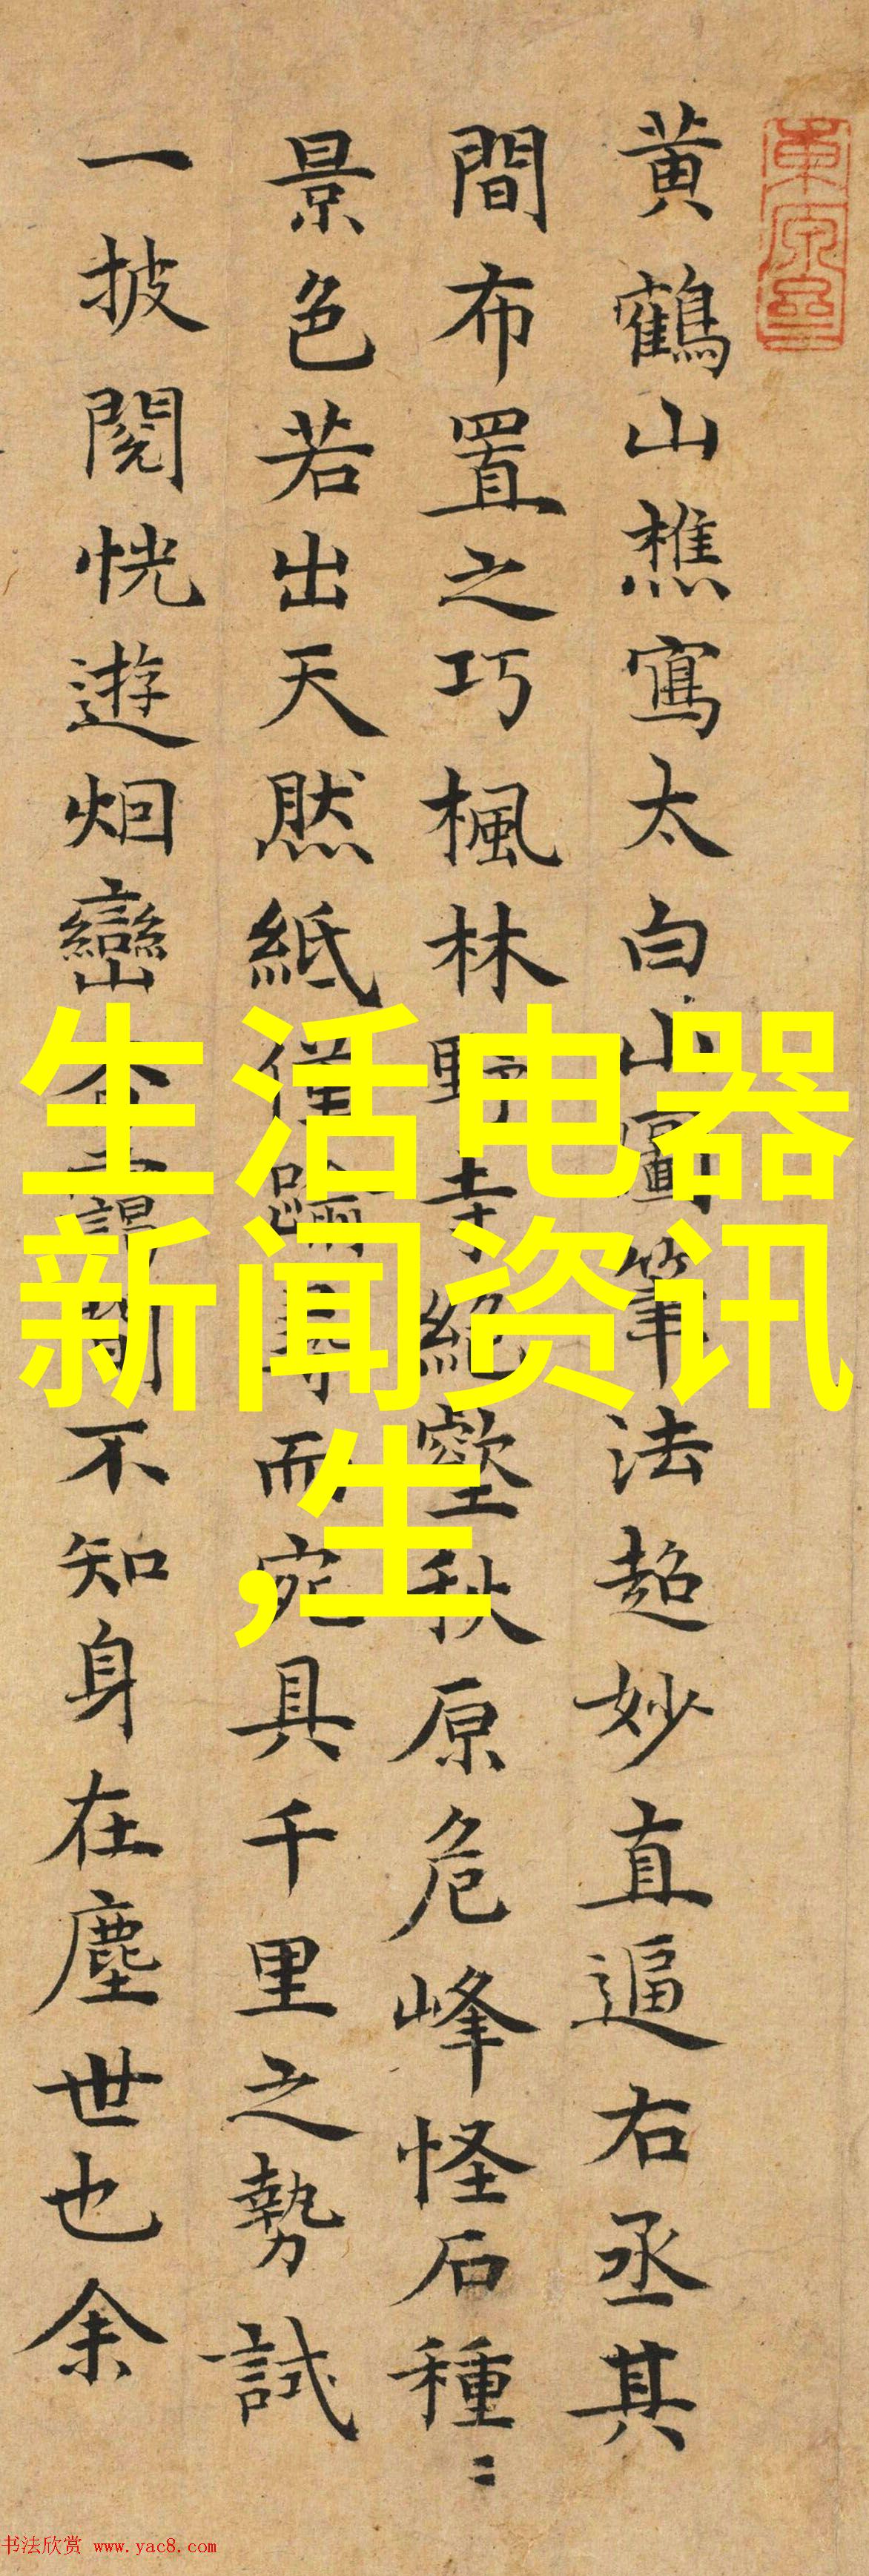 東原冩
黄鶴山樵寫太白山圖筆法超妙直逼右丞其
間布置之巧楓林野寺絶壑秋原危峰怪石種〻
景色若出天然紙僅踰尋而宛具千里之勢試
一披閱恍遊烟巒不知身在塵世也余
生活电器
新闻资讯
,生
书法欣赏 www.yac8.com